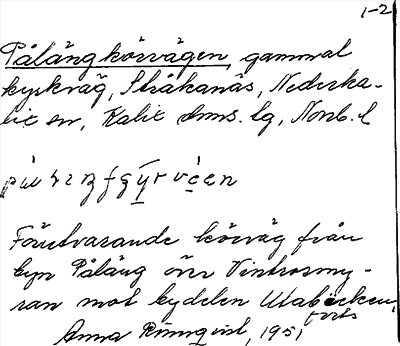 1-2
Pålängkörvägen, gammal
kyrkväg, Stråkanäs, Nederka-
lix sn, Kalix dms. lg, Norrb. l
Förutvarande körväg från
byn Påläng över Vintrosmy-
ran mot bydelen Utabäcken,
forts
Anna Rönnqvist, 1951